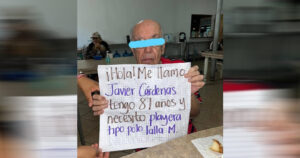 ¡Hola! Me llamo
Javier Cárdenas
tengo 87 años y
necesito playera
tipo polo talla M.